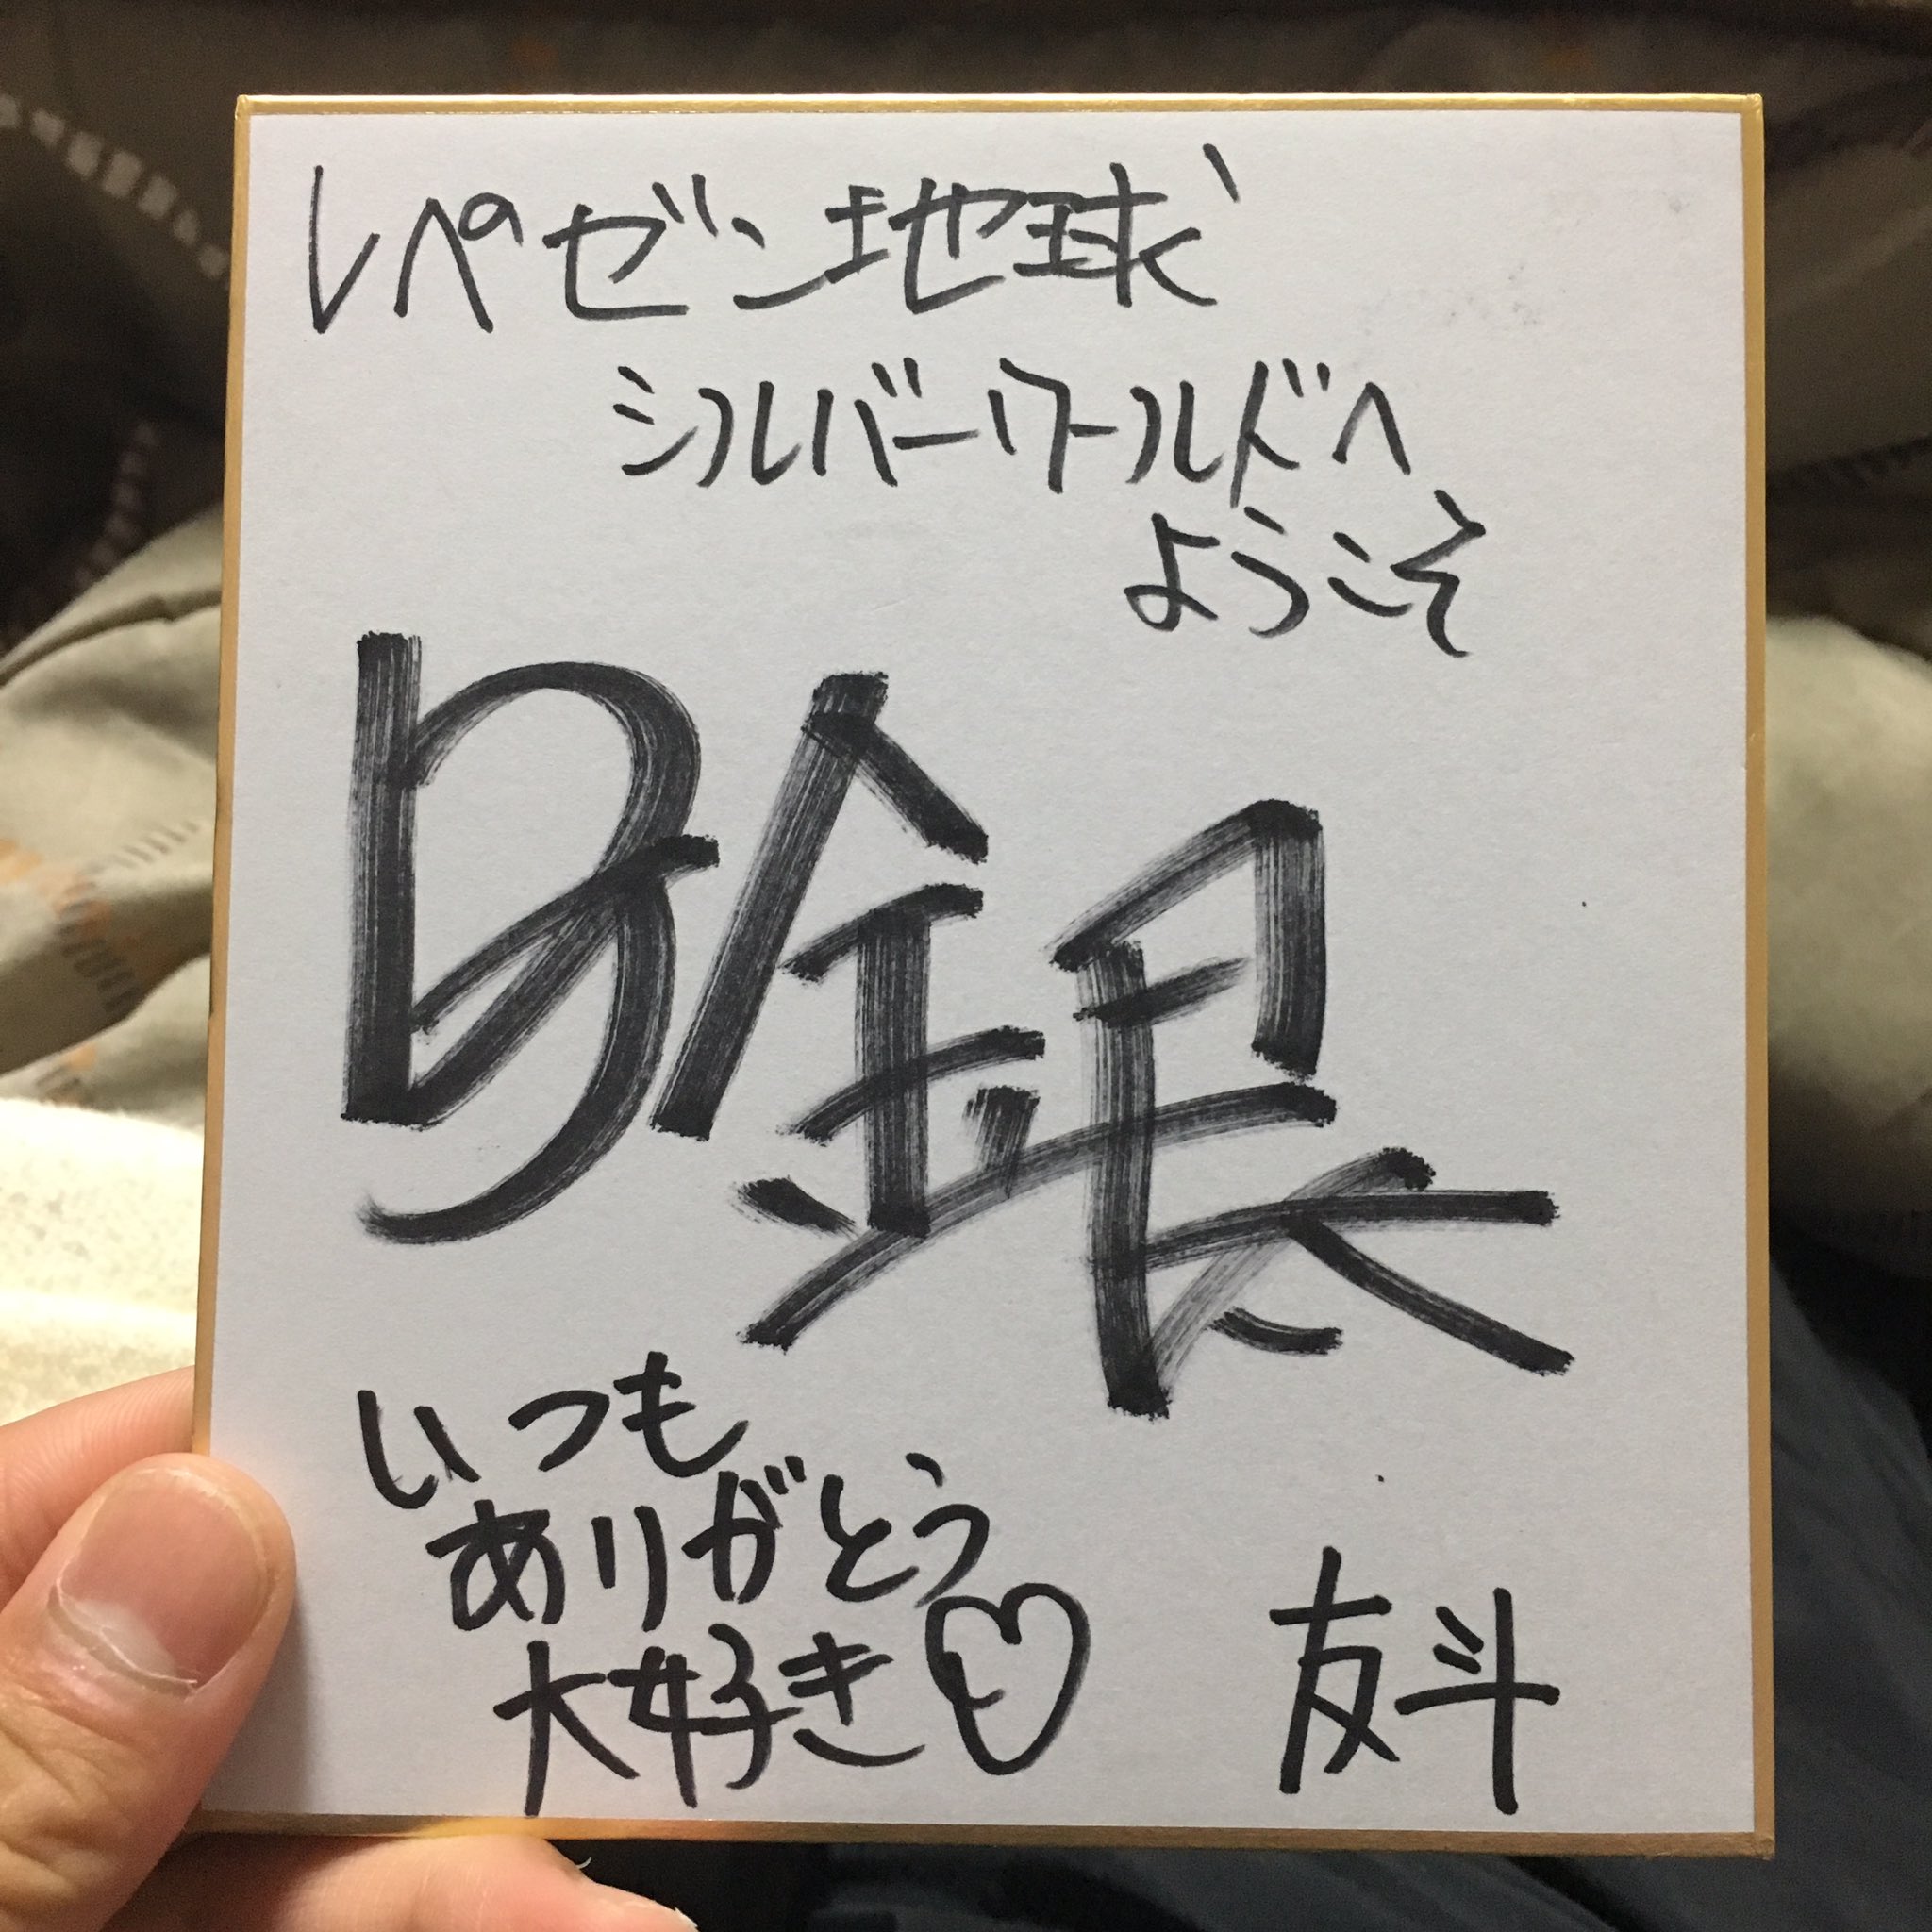 レペゼン地球
シルバーワールドへ
ようこそ
B銀
いつも
ありがとう
大好き♡
友斗